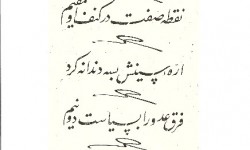 نقطه صفت در کنف او مقیم
اره سینش بسه دندانه کرد
فرق عدو را بپیاست دو نیم